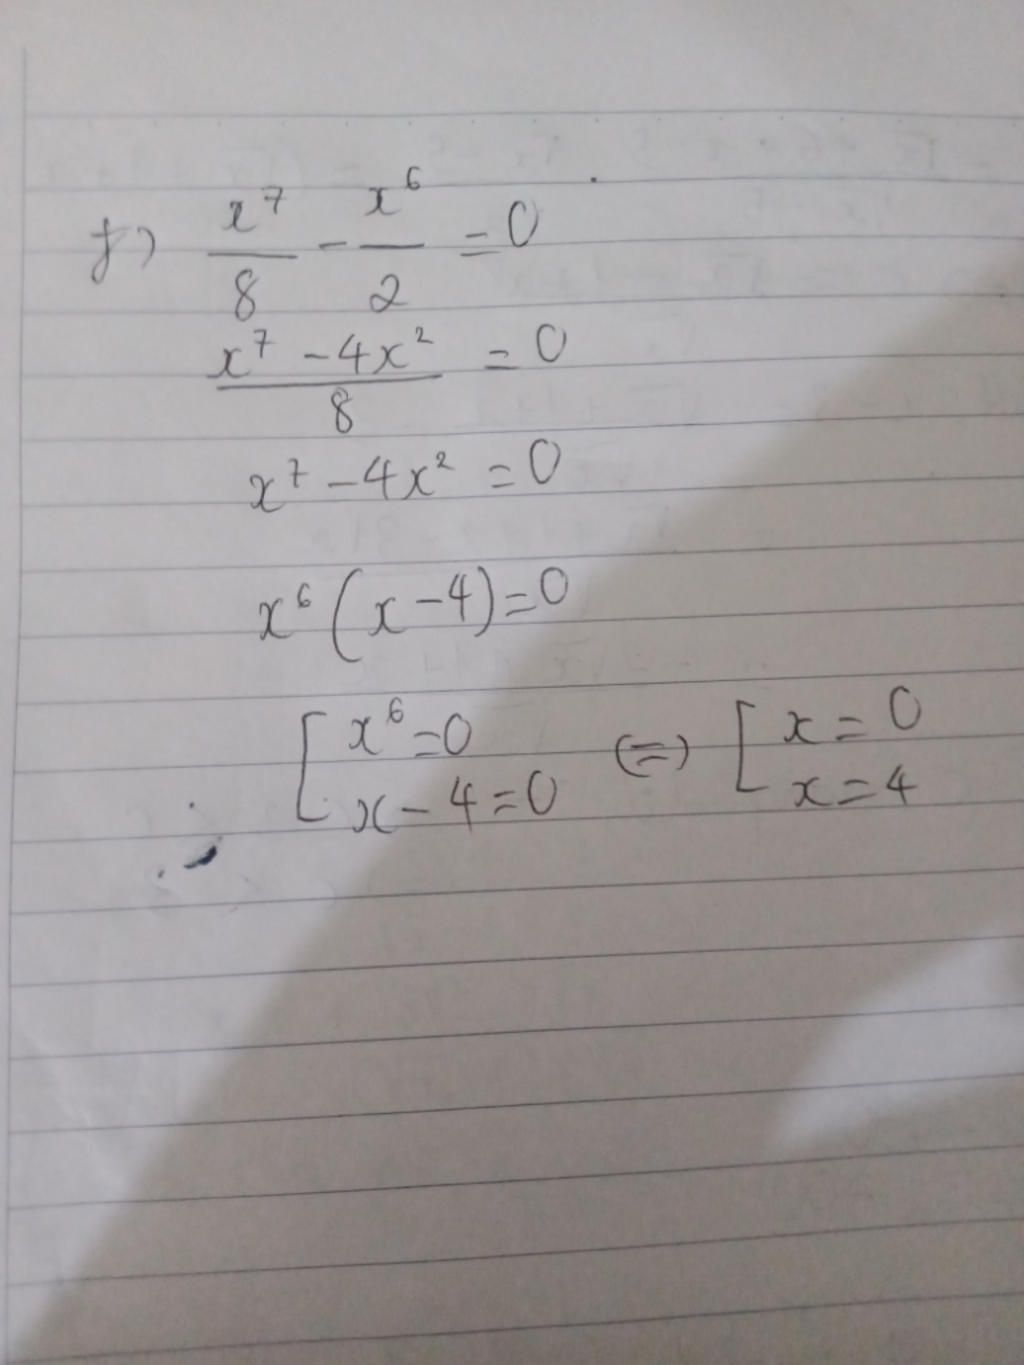 f) x⁷/8 - x⁶/2 = 0
(x⁷ - 4x²)/8 = 0
x⁷ - 4x² = 0
x⁶(x - 4) = 0
[ x⁶ = 0 (=) [ x = 0
x - 4 = 0 x = 4